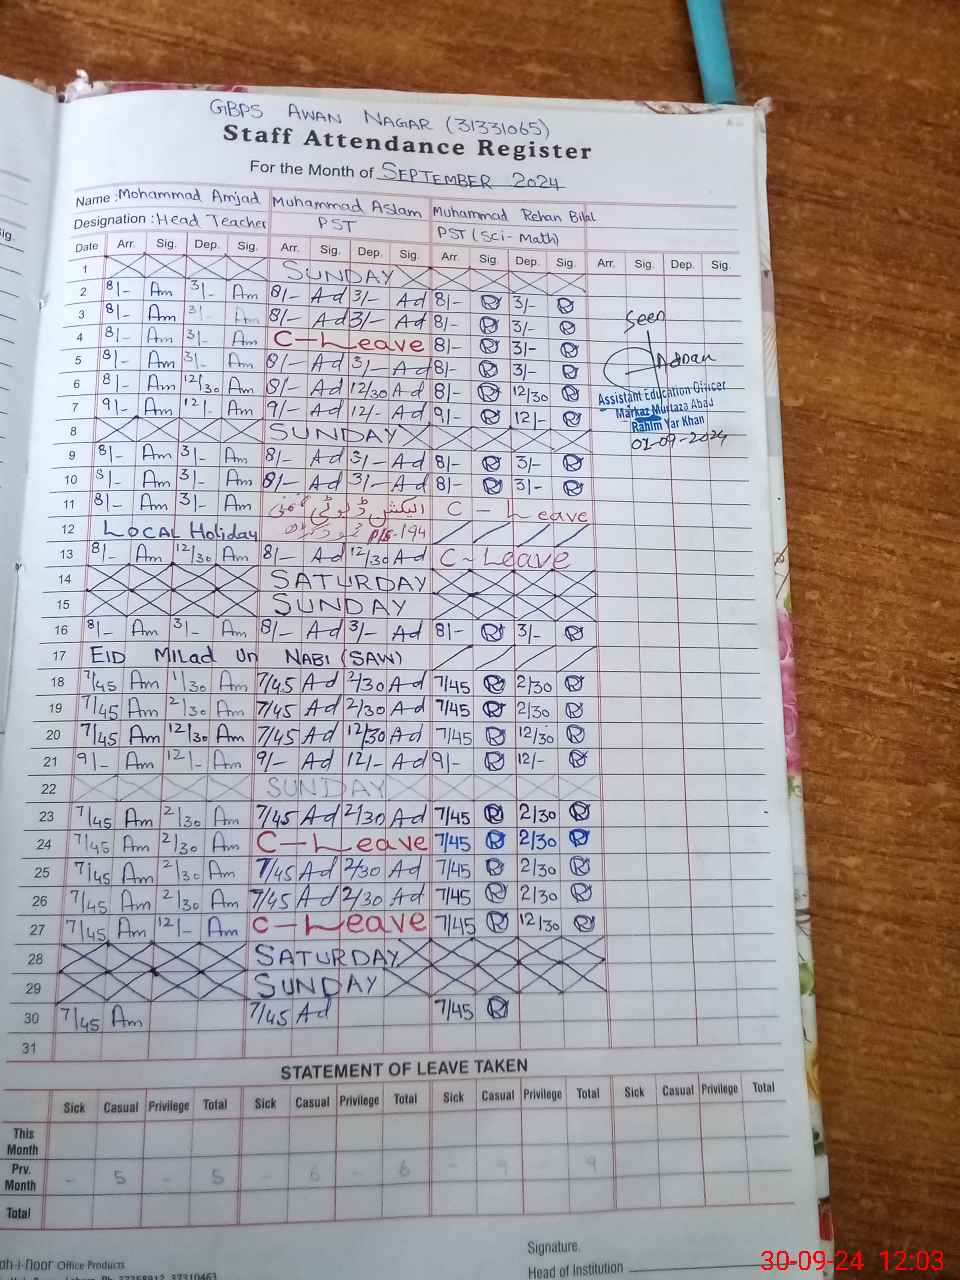 GBPS AWAN NAGAR (31331065)
Staff Attendance Register
For the Month of SEPTEMBER 2024
Name : Mohammad Amjad Muhammad Aslam Muhammad Rehan Bilal
Designation : Head Teacher PST PST (Sci-Math)
Date Arr. Sig. Dep. Sig. Arr. Sig. Dep. Sig. Arr. Sig. Dep. Sig. Arr. Sig. Dep. Sig.
1 SUNDAY
2 8/- Am 3/- Am 8/- Ad 3/- Ad 8/- R 3/- R
3 8/- Am 3/- Am 8/- Ad 3/- Ad 8/- R 3/- R
4 8/- Am 3/- Am C-Leave 8/- R 3/- R
5 8/- Am 3/- Am 8/- Ad 3/- Ad 8/- R 3/- R
6 8/- Am 12/30 Am 8/- Ad 12/30 Ad 8/- R 12/30 R
7 9/- Am 12/- Am 9/- Ad 12/- Ad 9/- R 12/- R
8 SUNDAY
9 8/- Am 3/- Am 8/- Ad 3/- Ad 8/- R 3/- R
10 8/- Am 3/- Am 8/- Ad 3/- Ad 8/- R 3/- R
11 8/- Am 3/- Am الیکشن ڈیوٹی C - Leave
12 LOCAL Holiday 194
13 8/- Am 12/30 Am 8/- Ad 12/30 Ad C-Leave
14 SATURDAY
15 SUNDAY
16 8/- Am 3/- Am 8/- Ad 3/- Ad 8/- R 3/- R
17 EID MILAD UN NABI (SAW)
18 7/45 Am 1/30 Am 7/45 Ad 2/30 Ad 7/45 R 2/30 R
19 7/45 Am 2/30 Am 7/45 Ad 2/30 Ad 7/45 R 2/30 R
20 7/45 Am 12/30 Am 7/45 Ad 12/30 Ad 7/45 R 12/30 R
21 9/- Am 12/- Am 9/- Ad 12/- Ad 9/- R 12/- R
22 SUNDAY
23 7/45 Am 2/30 Am 7/45 Ad 2/30 Ad 7/45 R 2/30 R
24 7/45 Am 2/30 Am C-Leave 7/45 R 2/30 R
25 7/45 Am 2/30 Am 7/45 Ad 2/30 Ad 7/45 R 2/30 R
26 7/45 Am 2/30 Am 7/45 Ad 2/30 Ad 7/45 R 2/30 R
27 7/45 Am 12/- Am C-Leave 7/45 R 12/30 R
28 SATURDAY
29 SUNDAY
30 7/45 Am 7/45 Ad 7/45 R
31
Seen
Adnan
Assistant Education Officer
Markaz Murtaza Abad
Rahim Yar Khan
02-09-2024
STATEMENT OF LEAVE TAKEN
Sick Casual Privilege Total Sick Casual Privilege Total Sick Casual Privilege Total Sick Casual Privilege Total
This Month
Prv. Month - 5 - 5 - 6 - 6 - 9 - 9
Total
Signature.
Head of Institution
oh-i-noor Office Products
37310463
30-09-24 12:03